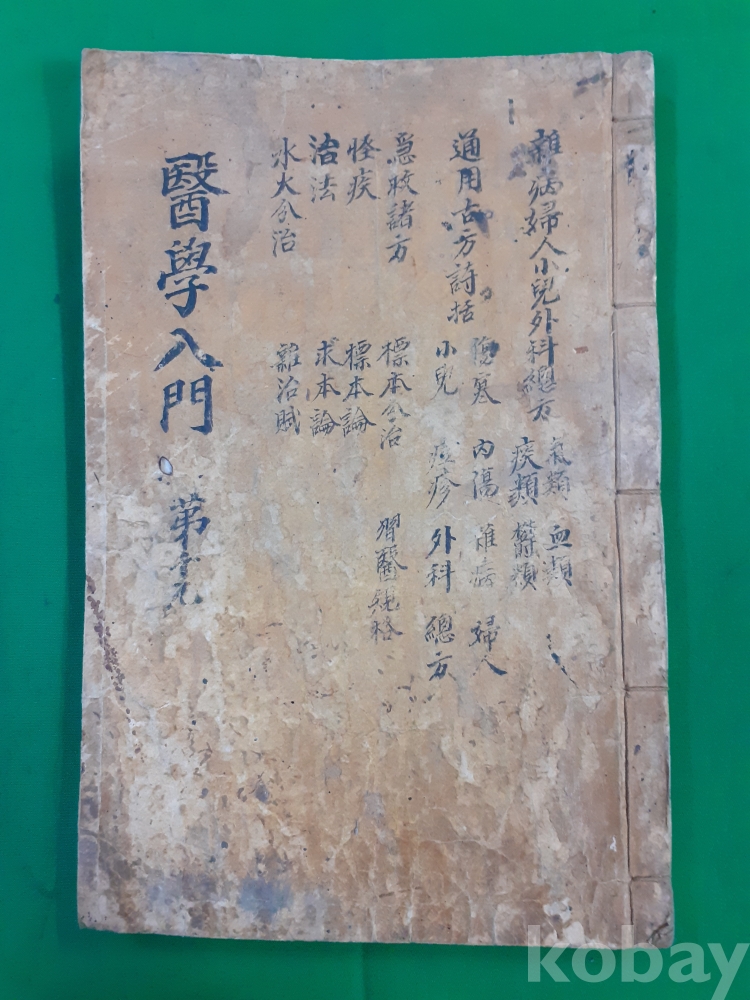 雜病婦人小兒外科總方
氣類 血類
痰類 欝類
通用古方詩括
傷寒 內傷 雜病 婦人
小兒 痘疹 外科 總方
急救諸方
標本分治 習醫規格
怪疾 標本論
治法 求本論
水火分治 雜治賦
醫學入門
苐
kobay